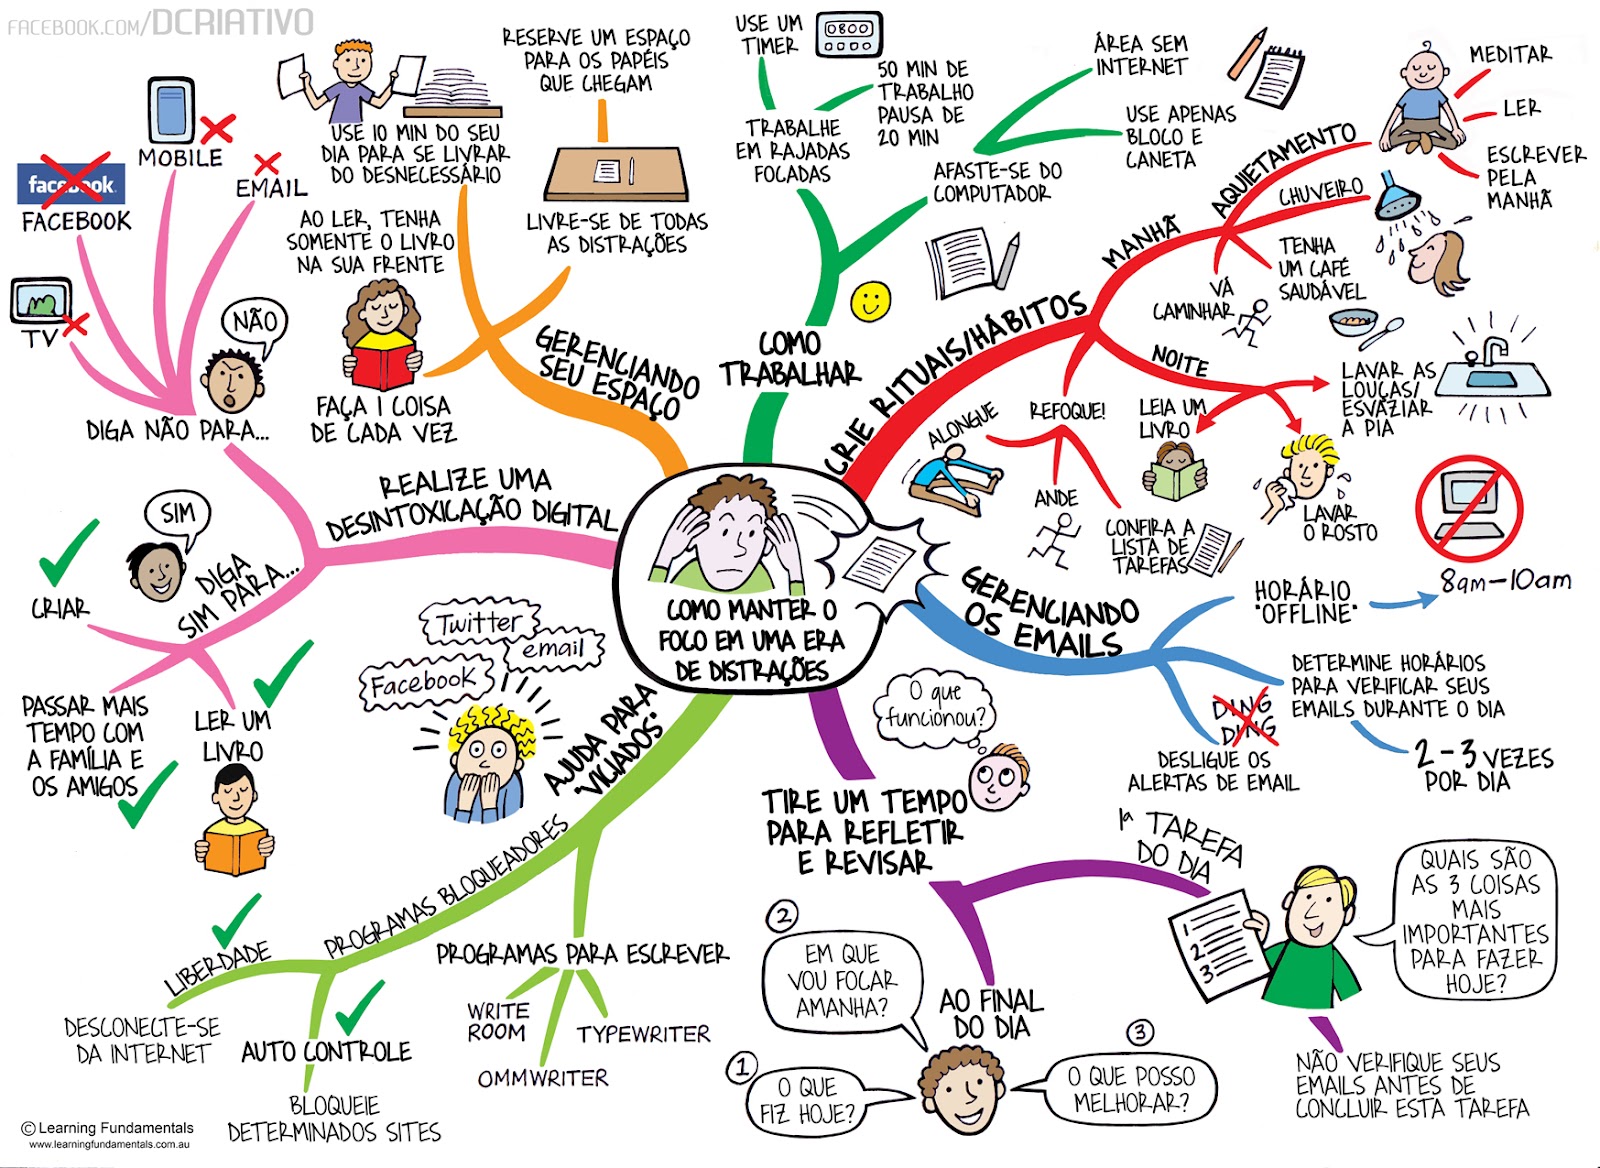 FACEBOOK.COM/DCRIATIVO
COMO MANTER O
FOCO EM UMA ERA
DE DISTRAÇÕES
CRIE RITUAIS/HÁBITOS
MANHÃ
AQUIETAMENTO
MEDITAR
LER
ESCREVER
PELA
MANHÃ
CHUVEIRO
TENHA
UM CAFÉ
SAUDÁVEL
VÁ
CAMINHAR
NOITE
LAVAR AS
LOUÇAS/
ESVAZIAR
A PIA
LEIA UM
LIVRO
LAVAR
O ROSTO
REFOQUE!
ALONGUE
ANDE
CONFIRA A
LISTA DE
TAREFAS
GERENCIANDO
OS EMAILS
HORÁRIO
"OFFLINE"
8am-10am
DETERMINE HORÁRIOS
PARA VERIFICAR SEUS
EMAILS DURANTE O DIA
2-3 VEZES
POR DIA
DING
DING
DESLIGUE OS
ALERTAS DE EMAIL
O que
funcionou?
TIRE UM TEMPO
PARA REFLETIR
E REVISAR
1ª TAREFA
DO DIA
1
2
3
QUAIS SÃO
AS 3 COISAS
MAIS
IMPORTANTES
PARA FAZER
HOJE?
NÃO VERIFIQUE SEUS
EMAILS ANTES DE
CONCLUIR ESTA TAREFA
AO FINAL
DO DIA
1
O QUE
FIZ HOJE?
2
EM QUE
VOU FOCAR
AMANHA?
3
O QUE POSSO
MELHORAR?
AJUDA PARA
"VICIADOS"
Twitter
email
Facebook
PROGRAMAS BLOQUEADORES
LIBERDADE
DESCONECTE-SE
DA INTERNET
AUTO CONTROLE
BLOQUEIE
DETERMINADOS SITES
PROGRAMAS PARA ESCREVER
WRITE
ROOM
OMMWRITER
TYPEWRITER
REALIZE UMA
DESINTOXICAÇÃO DIGITAL
DIGA
SIM PARA...
SIM
CRIAR
PASSAR MAIS
TEMPO COM
A FAMÍLIA E
OS AMIGOS
LER UM
LIVRO
DIGA NÃO PARA...
NÃO
TV
facebook.
FACEBOOK
MOBILE
EMAIL
GERENCIANDO
SEU ESPAÇO
USE 10 MIN DO SEU
DIA PARA SE LIVRAR
DO DESNECESSÁRIO
RESERVE UM ESPAÇO
PARA OS PAPÉIS
QUE CHEGAM
LIVRE-SE DE TODAS
AS DISTRAÇÕES
AO LER, TENHA
SOMENTE O LIVRO
NA SUA FRENTE
FAÇA 1 COISA
DE CADA VEZ
COMO
TRABALHAR
TRABALHE
EM RAJADAS
FOCADAS
USE UM
TIMER
50 MIN DE
TRABALHO
PAUSA DE
20 MIN
AFASTE-SE DO
COMPUTADOR
ÁREA SEM
INTERNET
USE APENAS
BLOCO E
CANETA
© Learning Fundamentals
www.learningfundamentals.com.au